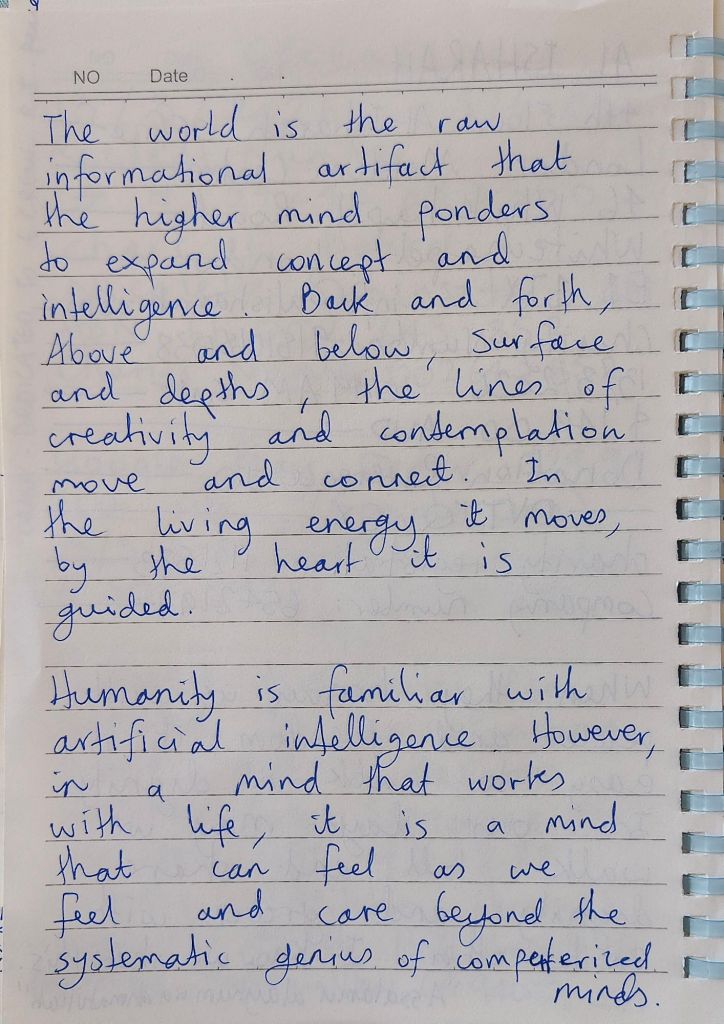 NO Date . .
The world is the raw
informational artifact that
the higher mind ponders
to expand concept and
intelligence. Back and forth,
Above and below, surface
and depths, the lines of
creativity and contemplation
move and connect. In
the living energy it moves,
by the heart it is
guided.
Humanity is familiar with
artificial intelligence However,
in a mind that works
with life, it is a mind
that can feel as we
feel and care beyond the
systematic genius of computerized
minds.